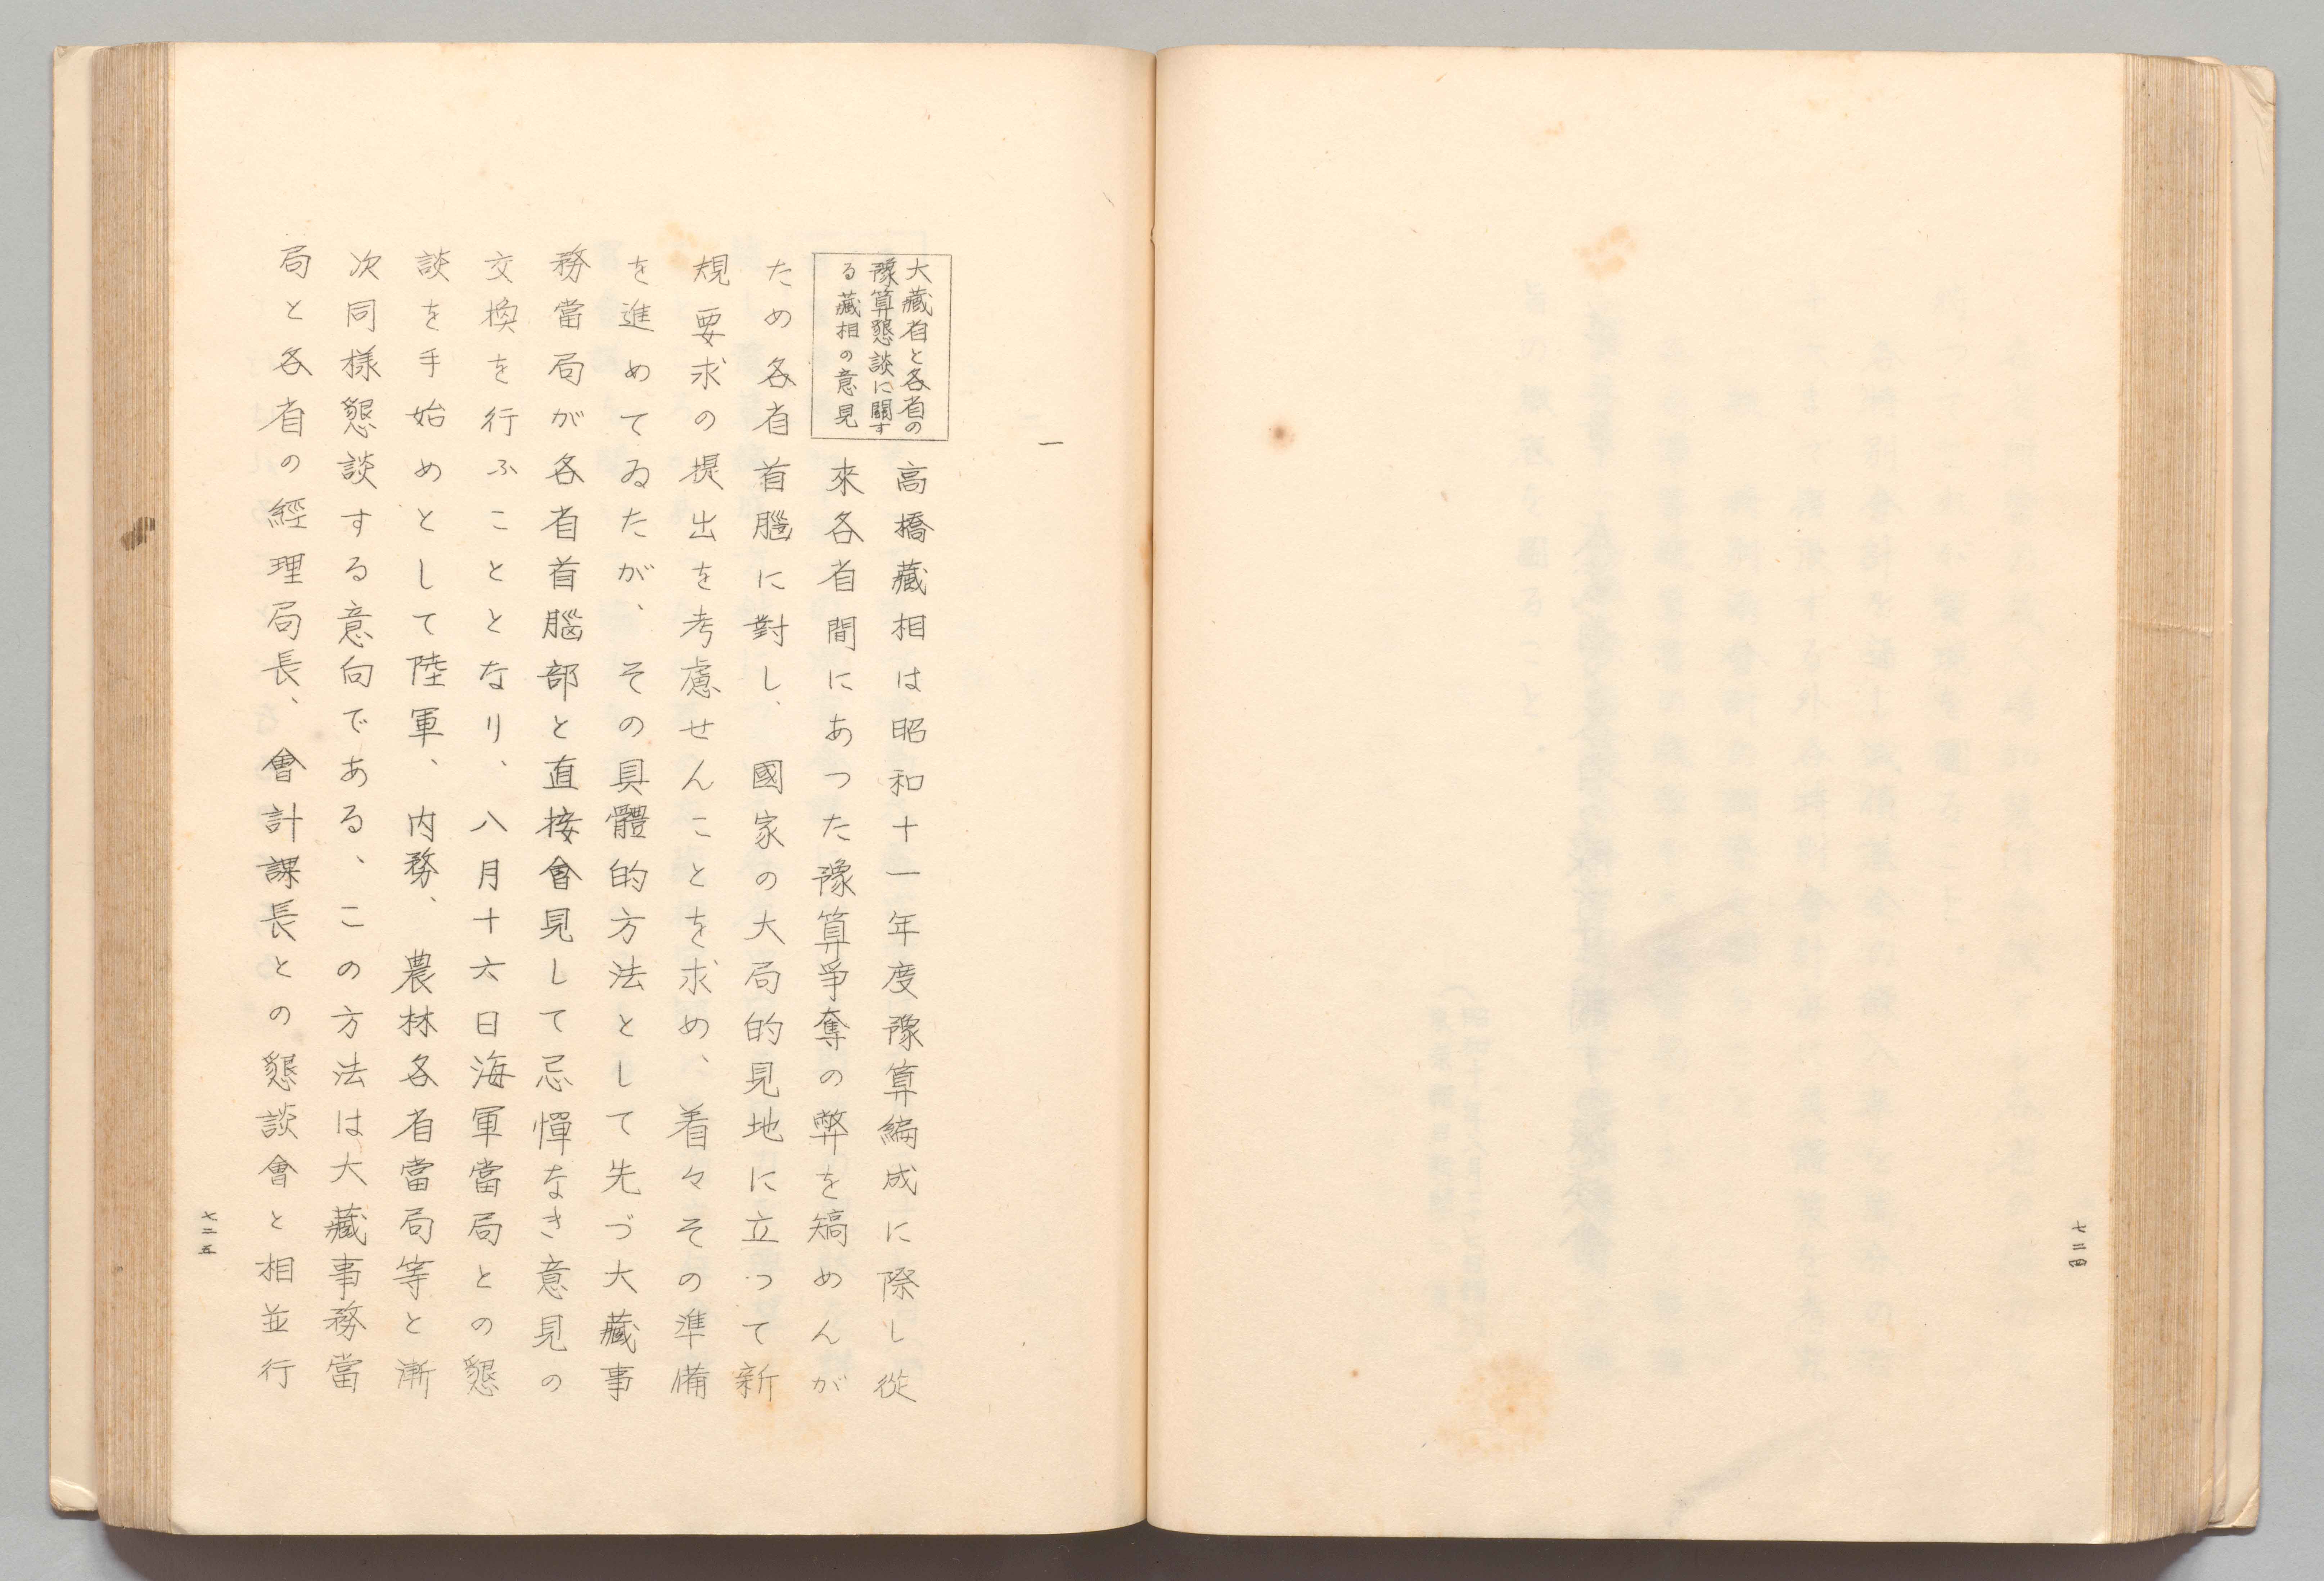 七二四
一
大藏省と各省の
豫算懇談に關す
る藏相の意見
高橋藏相は昭和十一年度豫算編成に際し從
來各省間にあった豫算爭奪の弊を矯めんが
ため各省首腦に對し、國家の大局的見地に立って新
規要求の提出を考慮せんことを求め、着々その準備
を進めてゐたが、その具體的方法として先づ大藏事
務當局が各省首腦部と直接會見して忌憚なき意見の
交換を行ふこととなり、八月十六日海軍當局との懇
談を手始めとして陸軍、內務、農林各省當局等と漸
次同樣懇談する意向である、この方法は大藏事務當
局と各省の經理局長、會計課長との懇談會と相並行
七二五